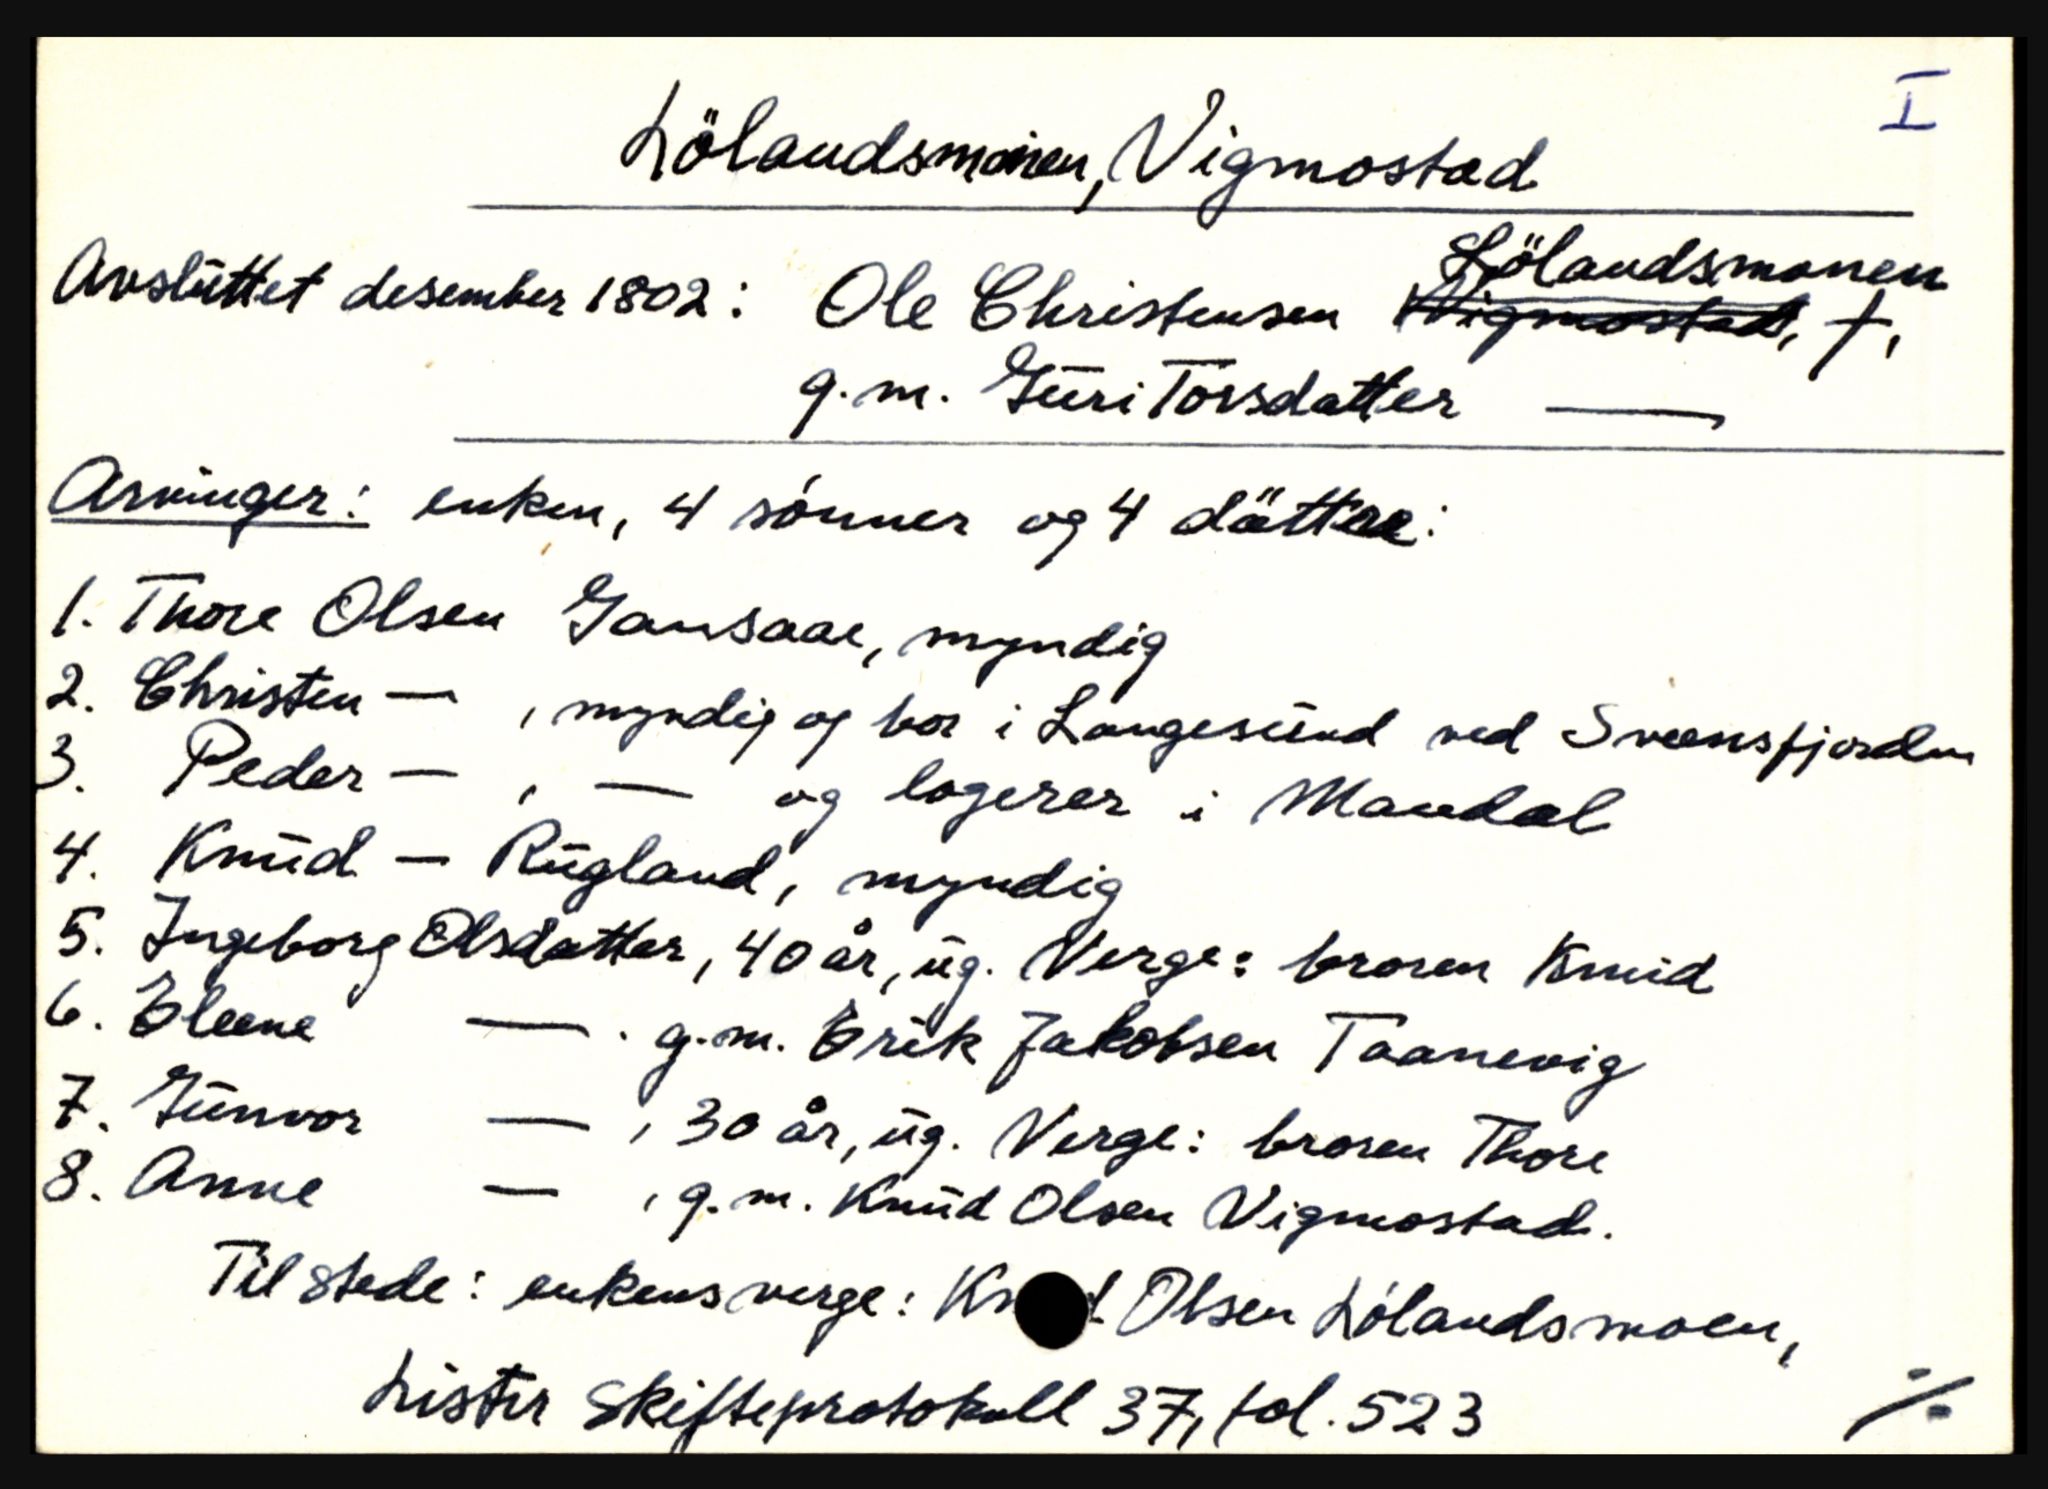 I
Lölandsmonen, Vigmostad
Lölandsmonen
Avsluttet desember 1802: Ole Christensen Vigmostad, †,
g.m. Guri Torsdatter —
Arvinger: enken, 4 sønner og 4 döttre:
1. Thore Olsen Gausaae, myndig
2. Christen — , myndig og bor i Langesund ved Sveensfjorden
3. Peder — , — og logerer i Mandal
4. Knud — Rugland, myndig
5. Ingeborg Olsdatter, 40 år, ug. Verge: broren Knud
6. Eleene — . g.m. Erik Jakobsen Taanevig
7. Gunvor — , 30 år, ug. Verge: broren Thore
8. Anne — , g.m. Knud Olsen Vigmostad.
Til stede: enkens verge: Kn d Olsen Lølandsmoen,
Lister Skifteprotokoll 37, fol. 523
%